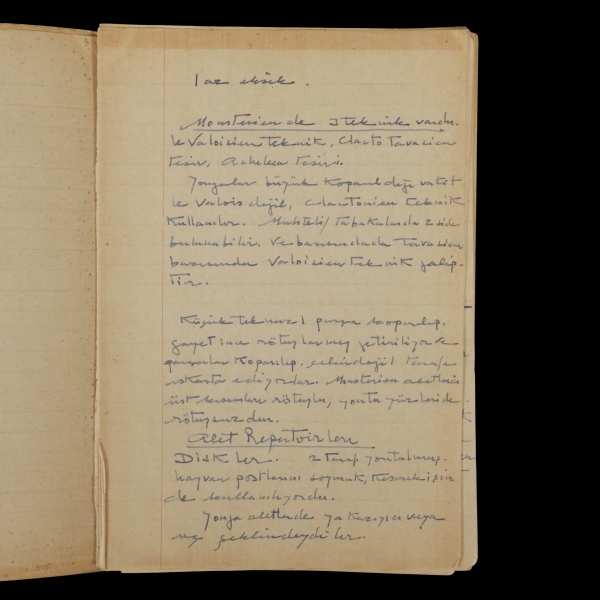 1 az eksik.
Mousterien de 3 teknik vardır.
le Valoisien teknik, Clacto Tavacien
tesir, Acheleen tesiri.
Yongalar büyük koparıldığı vakit
le Valois değil, Clactonien teknik
kullanılır. Muhtelif tabakalarda 2 side
bulunabilir, ve bazısındada Tavacien
bazısında Valoisien teknik galip-
tir.
Küçük tek parça koparılıp,
gayet ince rötuşlarmış getiriliyor
parçalar koparılıp, şeklindeği tarafı
ıskarta ediyorlar. Mousterien aletlerin
üst kısımları rötuşlu, yonta yüzleride
rötuşsuzdur.
Alet Repertoirleri
Diskler. 2 taraf yontulmuş
hayvan postlarını soymak, kesmek için
de kullanılıyordu.
Yonga aletlerde ya kazıyıcı veya
uç şeklindeydiler.